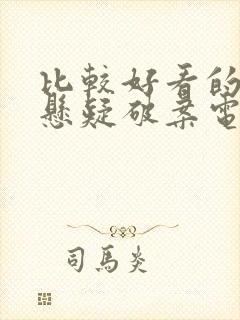 比較好看的
懸疑破案電
司馬炎